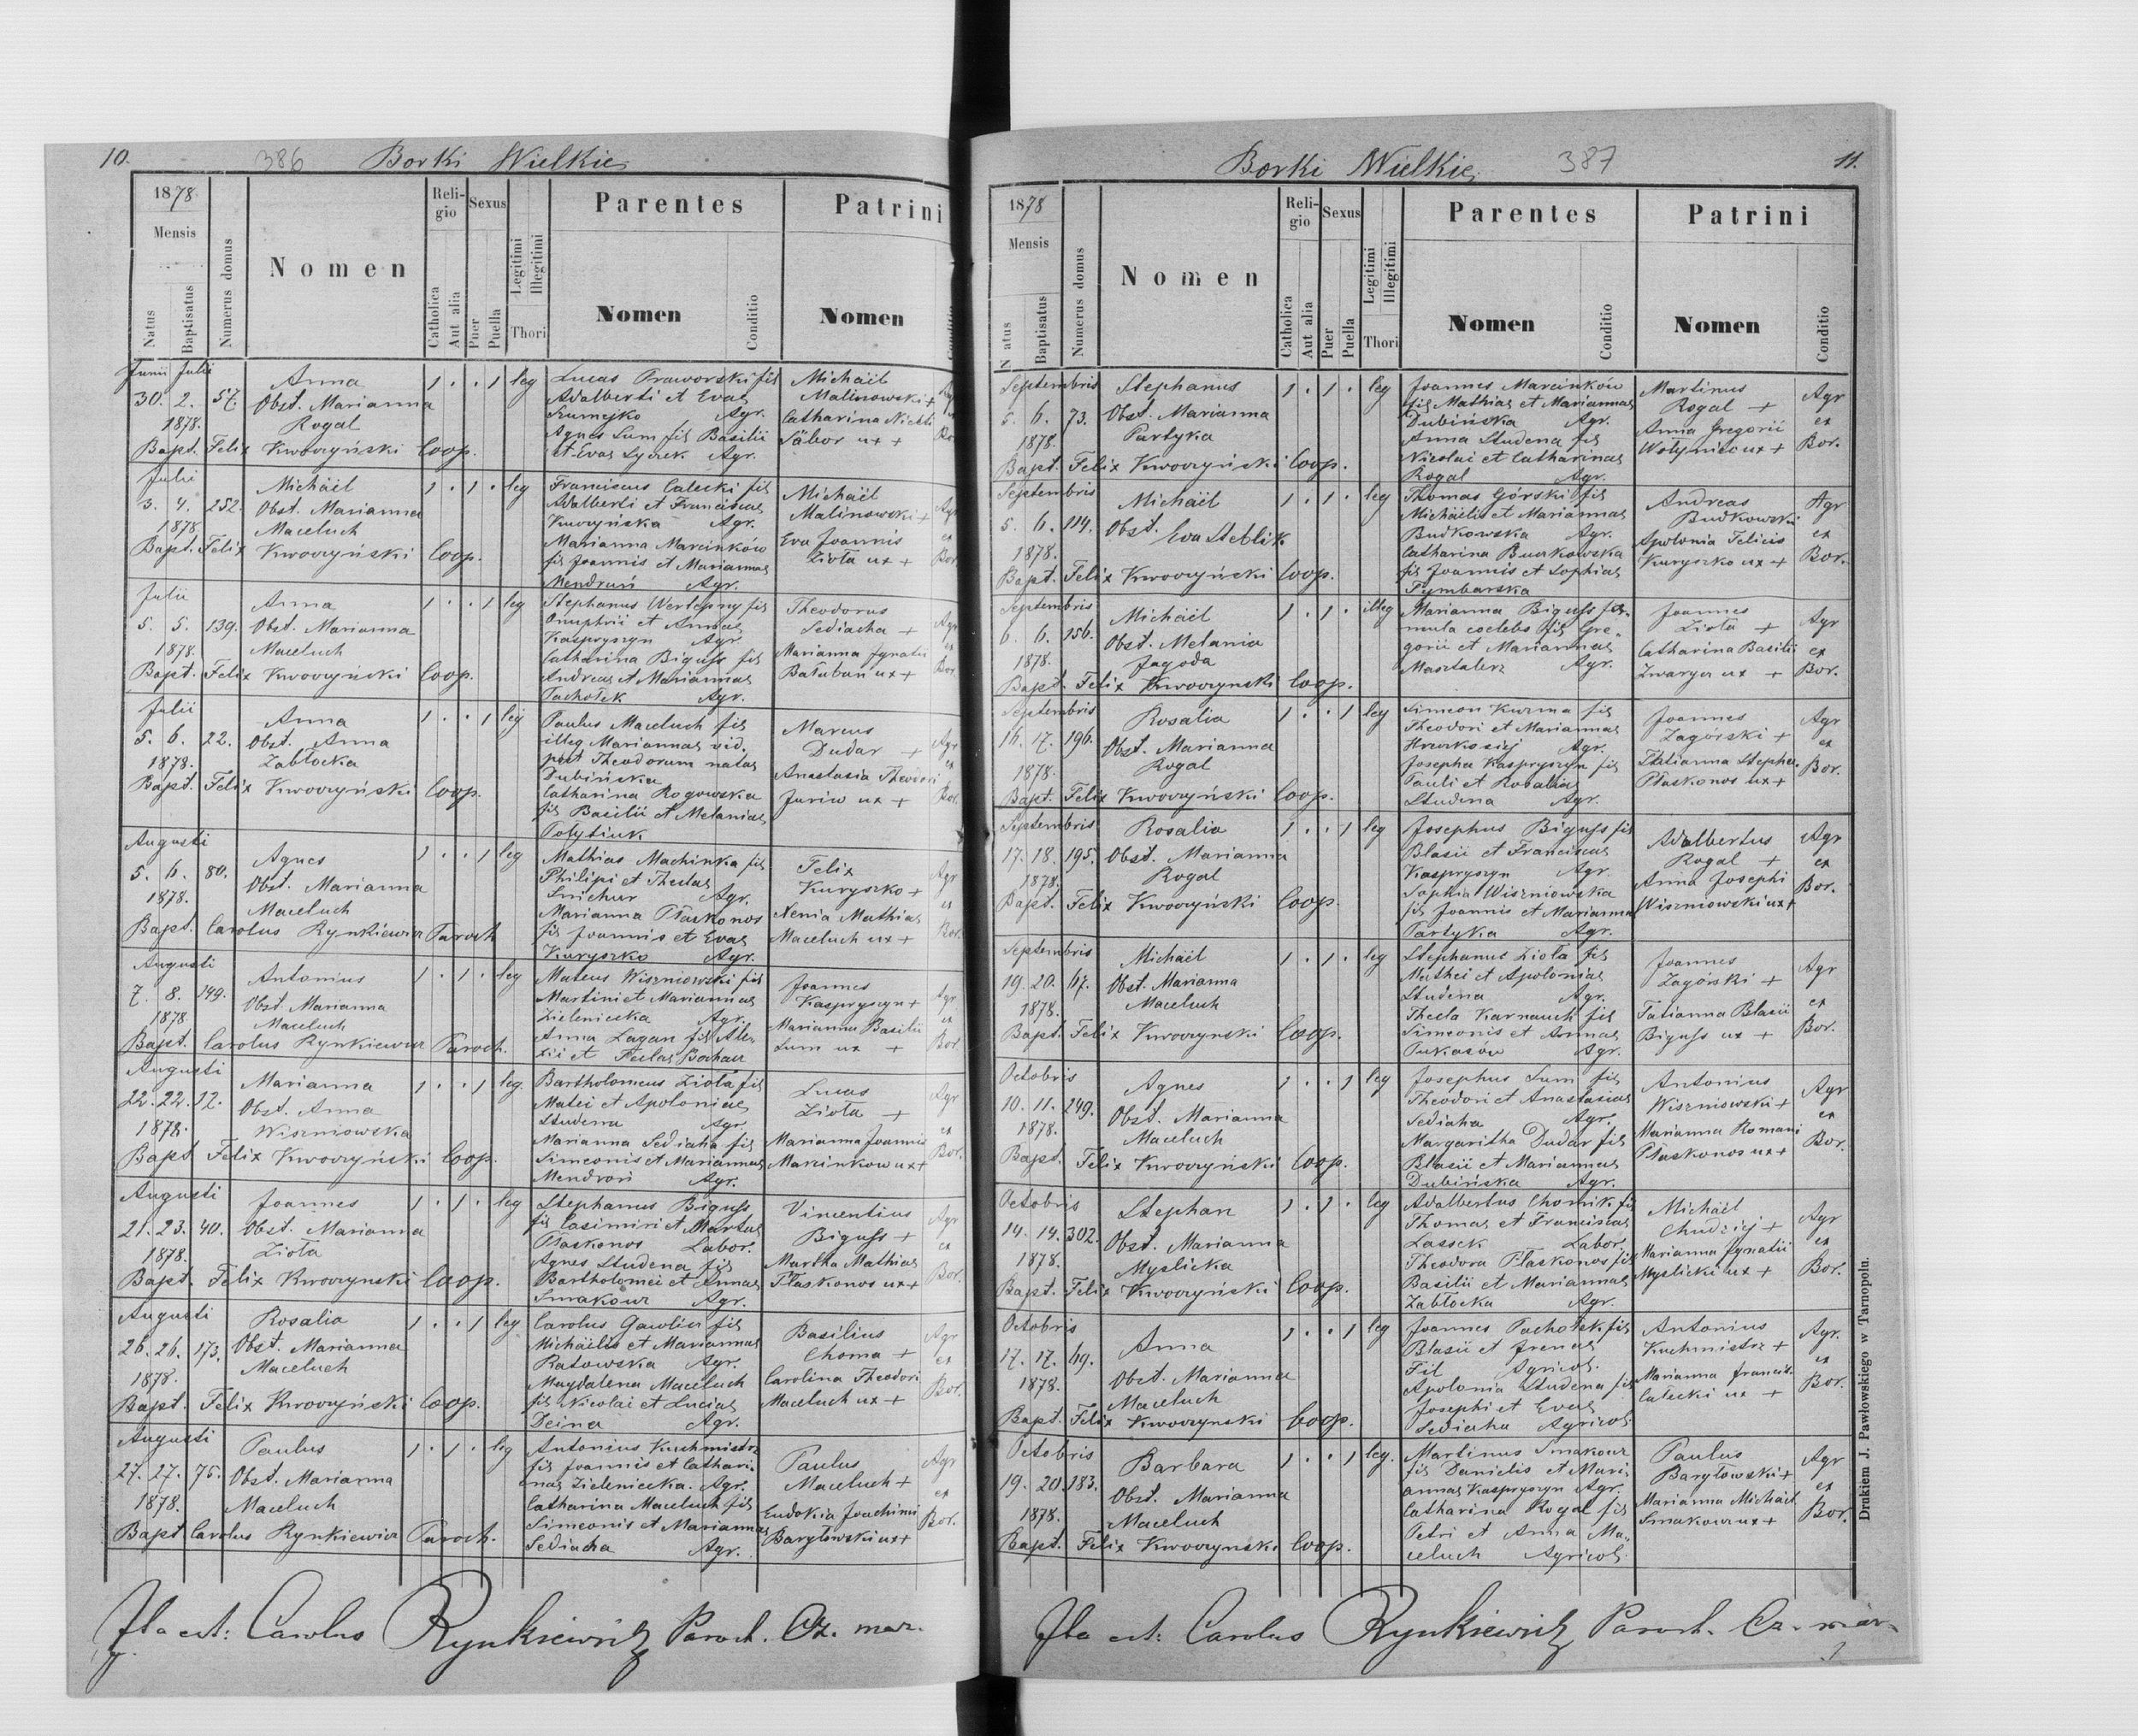 10.
386
Borki Wielkie
1878
Mensis
Natus
Baptisatus
Numerus domus
Nomen
Religio
Catholica
Aut alia
Sexus
Puer
Puella
Legitimi
Illegitimi
Thori
Parentes
Nomen
Conditio
Patrini
Nomen
Junii Julii
30. 2. 57.
1878.
Anna
Obst. Marianna
Rogal
Bapt. Felix Kwoczyński Coop.
1 . . 1 leg
Lucas Praworski fil
Adalberti et Evae
Szumejko Agr.
Agnes Sum fil Basilii
et Evae Lyczek Agr.
Michaël
Malinowski +
Catharina
Säbor ux +
Julii
3. 4. 252.
1878.
Michaël
Obst. Marianna
Maceluch
Bapt. Felix Kwoczyński Coop.
1 . 1 . leg
Franciscus Calecki fil
Adalberti et Franciscae
Agr.
Marianna Marcinków
fil Joannis et Mariannae
Mendruń Agr.
Michaël
Malinowski +
Eva Joannis
Ziola ux +
Julii
5. 5. 139.
1878.
Anna
Obst. Marianna
Maceluch
Bapt. Felix Kwoczyński Coop.
1 . . 1 leg
Stephanus fil
Onuphrii et Annae
Kaspryszyn Agr
Catharina Biguss fil
Andreae et Mariannae
Pacholek Agr.
Theodorus
Sediacha +
Marianna Ignatii
Bałaban ux +
Julii
5. 6. 22.
1878.
Anna
Obst. Anna
Zabłocka
Bapt. Felix Kwoczyński Coop.
1 . . 1 leg
Paulus Maceluch fil
illeg Mariannae vid.
post Theodorum natae
Dubińska
Catharina Rogowska
fil Basilii et Melaniae
Marcus
Dudar +
Anastasia Theodori
Juriw ux +
Augusti
5. 6. 80.
1878.
Agnes
Obst. Marianna
Maceluch
Bapt. Carolus Rynkiewicz Paroch
1 . . 1 leg
Mathias Machinka fil
Philipi et Theclae
Smichur Agr.
Marianna Płaskonos
fil Joannis et Evae
Kuryszko Agr.
Felix
Kuryszko +
Xenia Mathiae
Maceluch ux +
Augusti
7. 8. 149.
1878
Antonius
Obst. Marianna
Maceluch
Bapt. Carolus Rynkiewicz Paroch.
1 . 1 . leg
Mateus Wiszniowski fil
Martini et Mariannae
Zieleniecka Agr.
Anna Łagan fil
et Teclae
Joannes
Kaspryszyn +
Marianna Basilii
Sum ux +
Augusti
22. 22. 12.
1878.
Marianna
Obst. Anna
Wiszniowska
Bapt Felix Kwoczyński Coop.
1 . . 1 leg.
Bartholomeus Zioła fil
Matei et Apoloniae
Studena Agr
Marianna Sediaha fil
Simeonis et Mariannae
Mendroń Agr.
Lucas
Zioła +
Marianna Joannis
Marcinkow ux +
Augusti
21. 23. 40.
1878.
Joannes
Obst. Marianna
Zioła
Bapt. Felix Kwoczynski Coop.
1 . 1 . leg
Stephanus Biguss
fil Casimiri et Marthae
Płaskonos Labor.
Agnes Studena fil
Bartholomei et Annae
Smakouz Agr.
Vincentius
Biguss +
Martha Mathiae
Płaskonos ux +
Augusti
26. 26. 173.
1878.
Rosalia
Obst. Marianna
Maceluch
Bapt. Felix Kwoczyński Coop.
1 . . 1 leg
Carolus Gawlicz fil
Michäelis et Mariannae
Ratowska Agr.
Magdalena Maceluch
fil Nicolai et Luciae
Deina Agr.
Basilius
Choma +
Carolina Theodori
Maceluch ux +
Augusti
27. 27. 75.
1878.
Paulus
Obst. Marianna
Maceluch
Bapt Carolus Rynkiewicz Paroch.
1 . 1 . leg
Antonius Kuchmistrz
fil Joannis et Cathari
nae Zieleniecka. Agr.
Catharina Maceluch fil
Simeonis et Mariannae
Sediacha Agr.
Paulus
Maceluch +
Eudokia Joachimi
Baryłowski ux +
Agr
ex
Bor.
Ita est: Carolus Rynkiewicz Paroch. Oz. mar.
Borki Wielkie
387
11.
1878
Mensis
Natus
Baptisatus
Numerus domus
Nomen
Religio
Catholica
Aut alia
Sexus
Puer
Puella
Legitimi
Illegitimi
Thori
Parentes
Nomen
Conditio
Patrini
Nomen
Conditio
Septembris
5. 6. 73.
1878
Stephanus
Obst. Marianna
Partyka
Bapt. Felix Kwoczyński Coop.
1 . 1 . leg
Joannes Marcinków
fil Mathiae et Mariannae
Dubińska Agr.
Anna Studena fil
Nicolai et Catharinae
Rogal Agr.
Martinus
Rogal +
Anna Gregorii
Wołyniec ux +
Agr
ex
Bor.
Septembris
5. 6. 114.
1878
Michaël
Obst. Eva Steblik
Bapt. Felix Kwoczyński Coop.
1 . 1 . leg
Thomas Górski fil
Michäelis et Mariannae
Budkowska Agr.
Catharina
fil Joannis et Sophiae
Tymbarska
Andreas
Budkowski
Apolonia Felicis
Kuryszko ux +
Agr
ex
Bor.
Septembris
6. 6. 156.
1878
Michäel
Obst. Melania
Jagoda
Bapt. Felix Kwoczynski Coop.
1 . 1 . illeg
Marianna Biguss fa-
mula coelebs fil Gre-
gorii et Mariannae
Masztalerz Agr.
Joannes
Zioła +
Catharina Basilii
Zwarycz ux +
Agr
ex
Bor.
Septembris
16. 17. 196.
1878
Rosalia
Obst. Marianna
Rogal
Bapt. Felix Kwoczyński Coop.
1 . . 1 leg
Simeon Kuzma fil
Theodori et Mariannae
Agr.
Josepha Kaspryszyn fil
Pauli et Rosaliae
Studena Agr.
Joannes
Zagórski +
Tatianna Stephani
Płaskonos ux +
Agr
ex
Bor.
Septembris
17. 18. 195.
1878
Rosalia
Obst. Marianna
Rogal
Bapt. Felix Kwoczyński Coop.
1 . . 1 leg
Josephus Biguss fil
Blasii et Franciscae
Kaspryszyn Agr.
Sophia Wiszniowska
fil Joannis et Mariannae
Partyka Agr.
Adalbertus
Rogal +
Anna Josephi
Wiszniowski ux +
Agr
ex
Bor.
Septembris
19. 20. 67.
1878
Michäel
Obst. Marianna
Maceluch
Bapt. Felix Kwoczynski Coop.
1 . 1 . leg
Stephanus Zioła fil
Mathei et Apoloniae
Studena Agr.
Thecla Karnauch fil
Simeonis et Annae
Agr.
Joannes
Zagórski +
Tatianna Blasii
Biguss ux +
Agr
ex
Bor.
Octobris
10. 11. 249.
1878.
Agnes
Obst. Marianna
Maceluch
Bapt. Felix Kwoczyński Coop.
1 . . 1 leg
Josephus Sum fil
Theodori et Anastasiae
Sediaha Agr.
Margaritha Dudar fil
Blasii et Mariannae
Dubińska Agr.
Antonius
Wiszniowski +
Marianna Romani
Płaskonos ux +
Agr
ex
Bor.
Octobris
14. 14. 302.
1878.
Stephan
Obst. Marianna
Myslicka
Bapt. Felix Kwoczyński Coop.
1 . 1 . leg
Adalbertus Chomik fil
Thomae et Franciscae
Lassek Labor.
Theodora Płaskonos fil
Basilii et Mariannae
Zabłocka Agr.
Michäel
Chudzij +
Marianna Ignatii
Myslicki ux +
Agr
ex
Bor.
Octobris
17. 17. 69.
1878.
Anna
Obst. Marianna
Maceluch
Bapt. Felix Kwoczynski Coop.
1 . . 1 leg
Joannes Pacholek fil
Blasii et Irenae
Fil Agricol.
Apolonia Studena fil
Josephi et Evae
Sediaha Agricol.
Antonius
Kuchmistrz +
Marianna Francisc.
Calecki ux +
Agr.
ex
Bor.
Octobris
19. 20. 183.
1878.
Barbara
Obst. Marianna
Maceluch
Bapt. Felix Kwoczynski Coop.
1 . . 1 leg.
Martinus Smakouz
fil Danielis et Mari-
annae Kaspryszyn Agr.
Catharina Rogal fil
Petri et Anna Ma-
celuch Agricol.
Paulus
Baryłowski +
Marianna Michäel
Smakouz ux +
Agr
ex
Bor.
Ita est: Carolus Rynkiewicz Paroch. Oz. mar.
Drukiem J. Pawłowskiego w Tarnopolu.